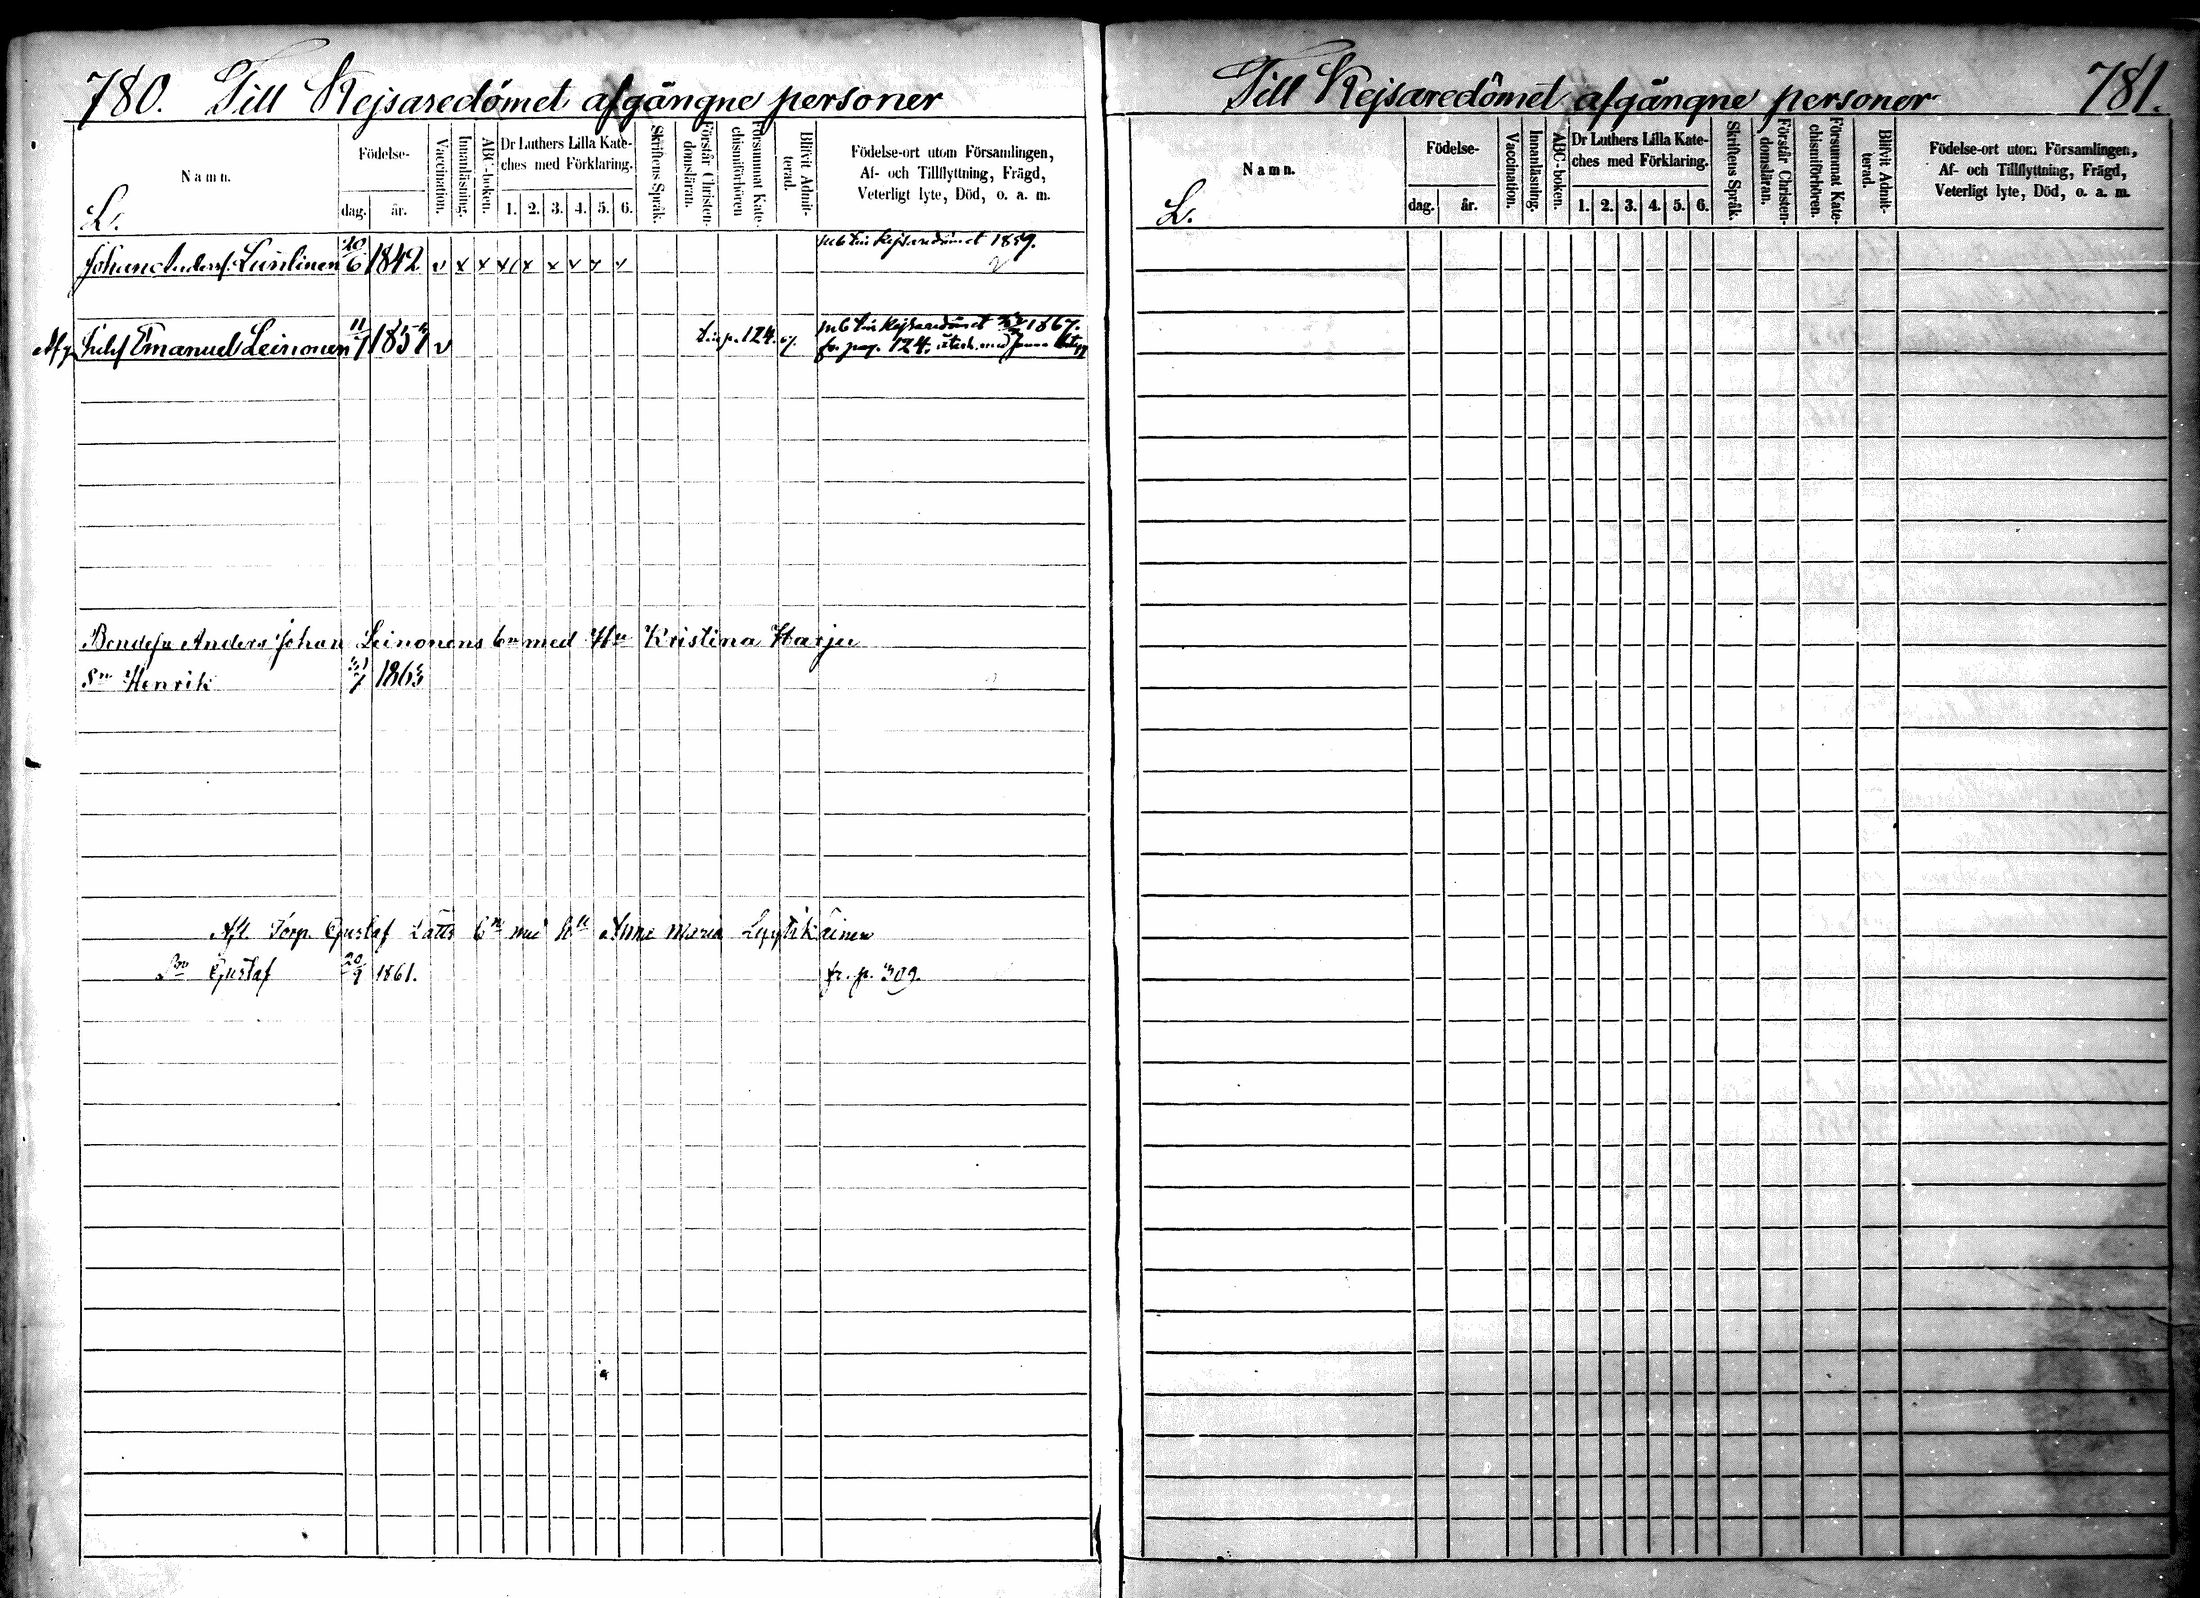 780. Till Kejsaredömet afgångne personer
Namn.
L.
Födelse-
dag.
år.
Vaccination.
Innanläsning.
ABC-boken.
Dr Luthers Lilla Kate-
ches med Förklaring.
1. 2. 3. 4. 5. 6.
Skriftens Språk.
Förstår Christen-
domsläran.
Försummat Kate-
chismiförhören
Blifvit Admit-
terad.
Födelse-ort utom Församlingen,
Af- och Tillflyttning, Frägd,
Veterligt lyte, Död, o. a. m.
Kejsaredömet 1859.
Johan Anderss. 10/6 1842 v x x x x x x
Kejsaredömet 1867.
Afg. Emanuel Leinonen 11/7 1857 v p. 124. fr. pag. 124.
Anders Johan Leinonens med Hu Kristina Harju
Sn Henrik 1863
Afl. Torp. Gustaf med Anna Maria Lyytikäinen
Sn Gustaf 20/9 1861. fr. p. 309.
Till Kejsaredömet afgångne personer 781.
Namn.
L.
Födelse-
dag.
år.
Vaccination.
Innanläsning.
ABC-boken.
Dr Luthers Lilla Kate-
ches med Förklaring.
1. 2. 3. 4. 5. 6.
Skriftens Språk.
Förstår Christen-
domsläran.
Försummat Kate-
chismiförhören.
Blifvit Admit-
terad.
Födelse-ort utom Församlingen,
Af- och Tillflyttning, Frägd,
Veterligt lyte, Död, o. a. m.